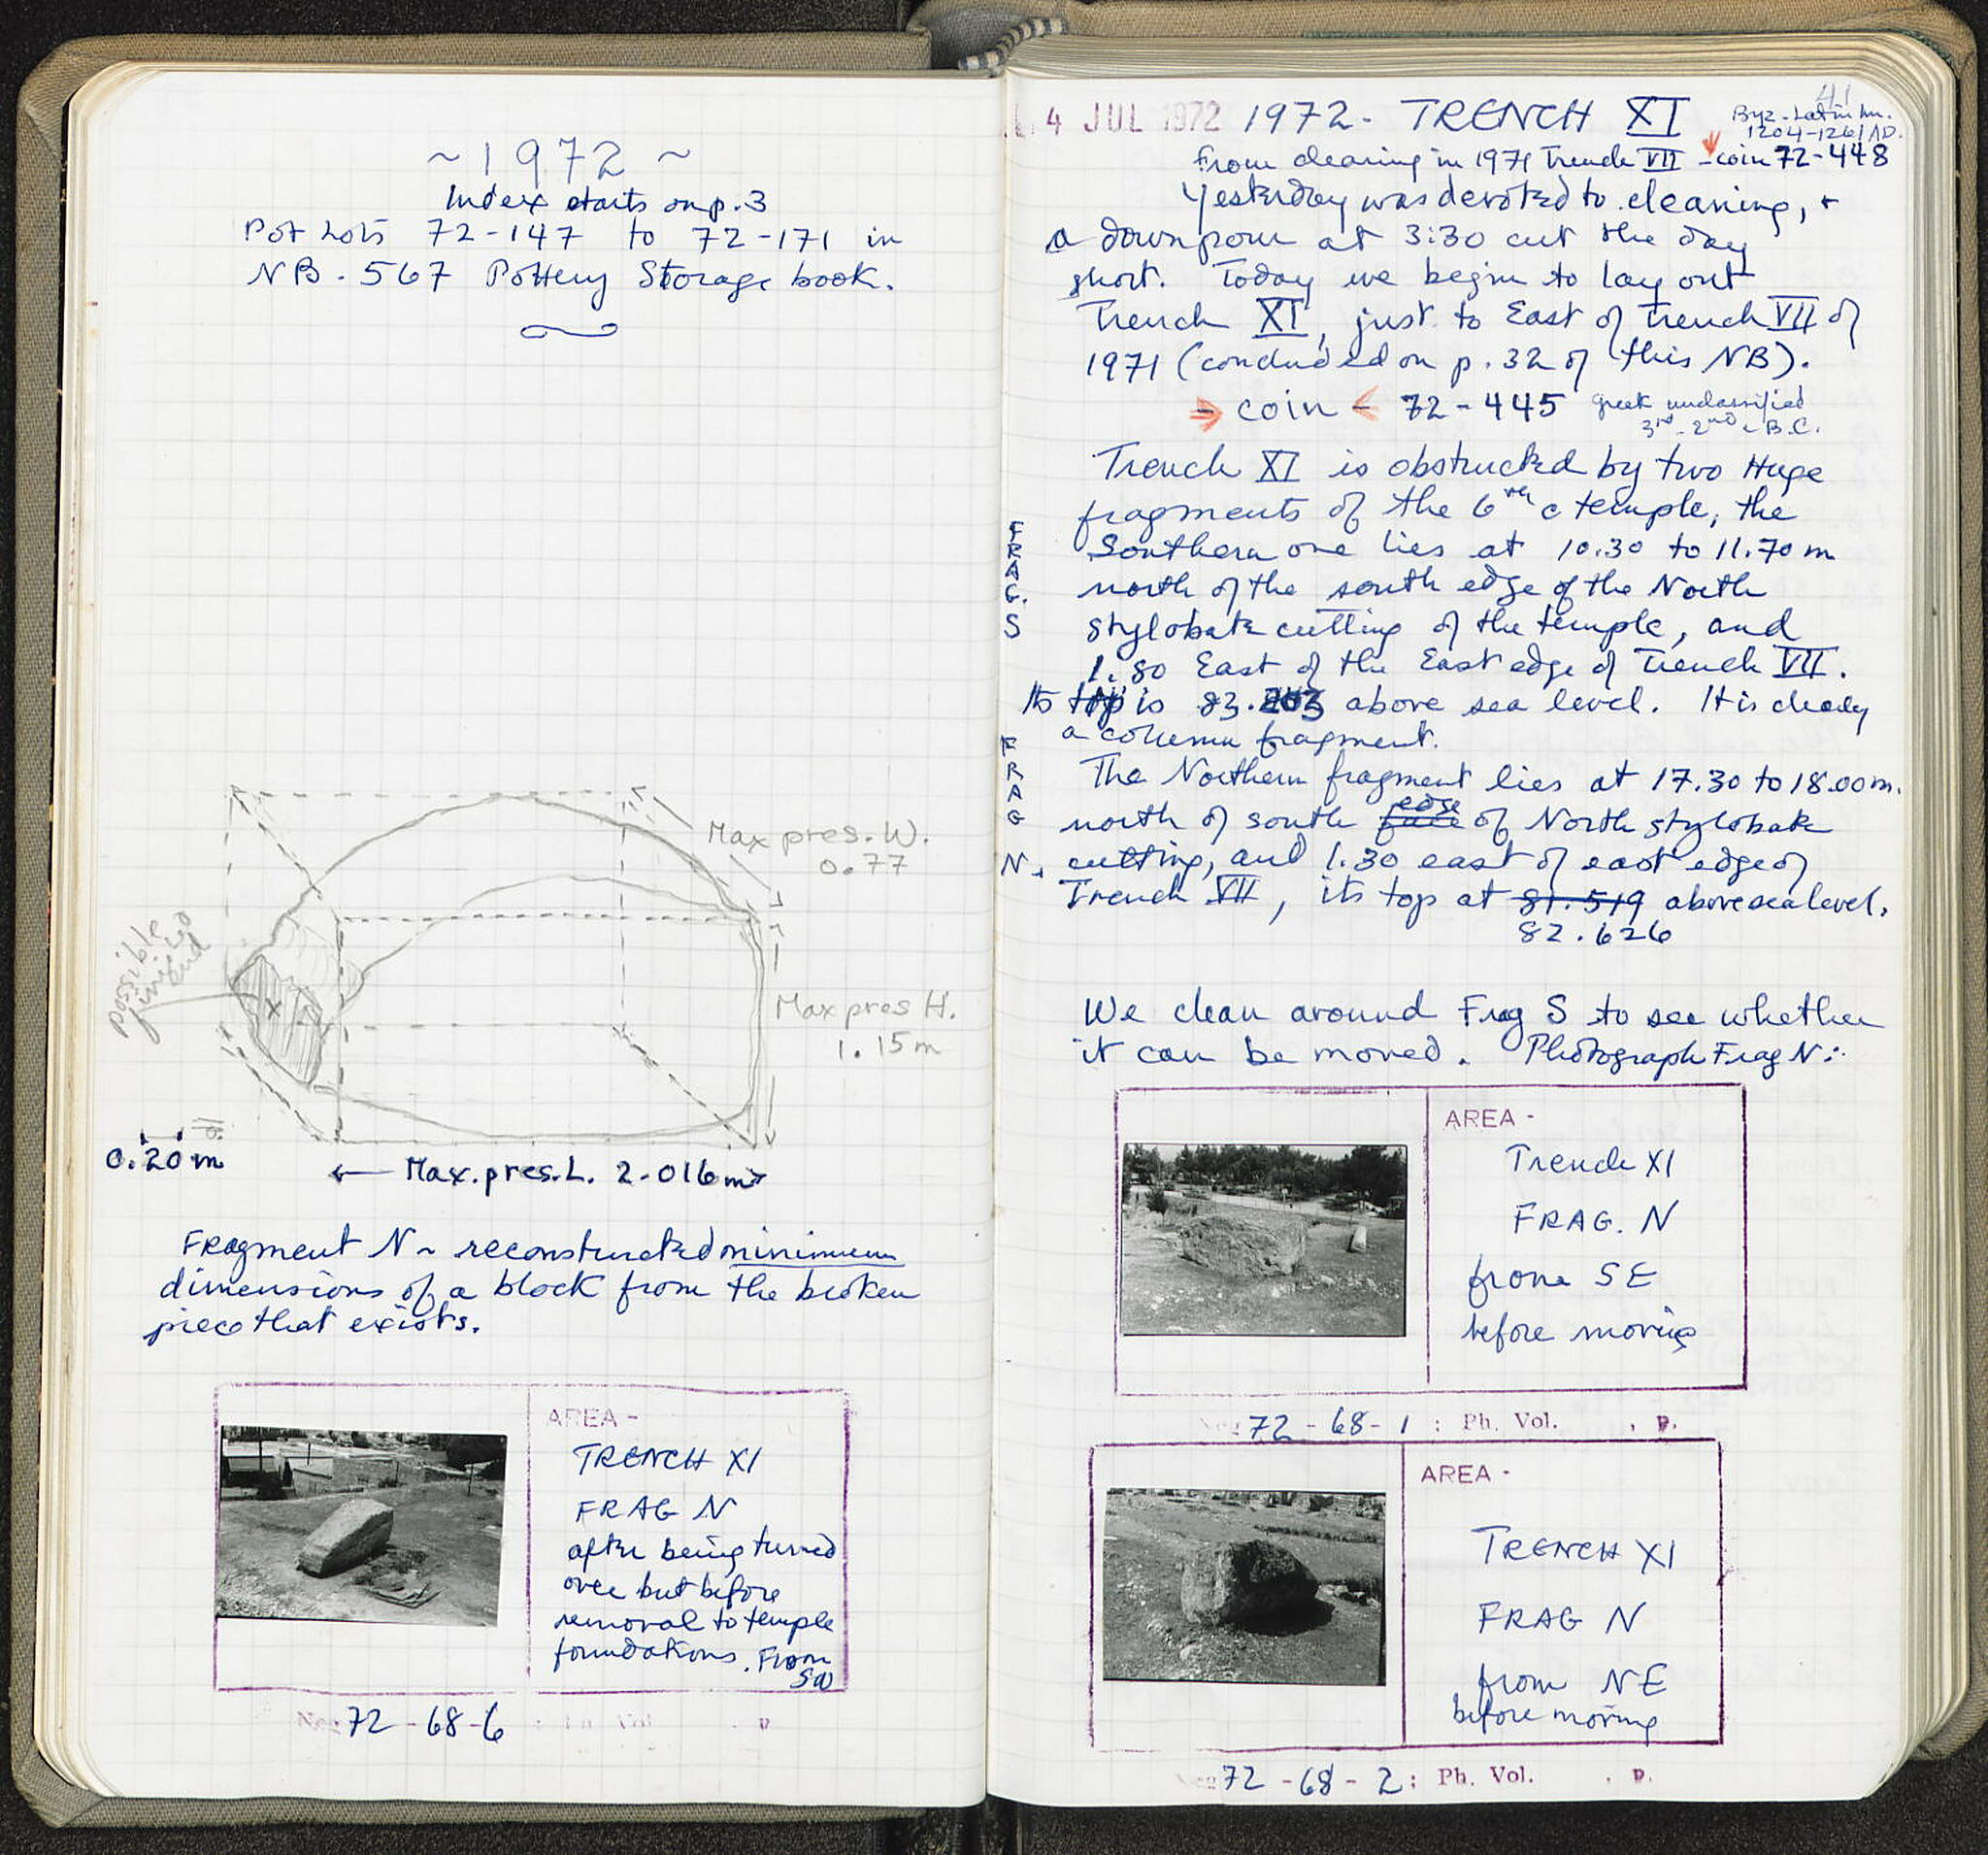 ~ 1972 ~
Index starts on p. 3
Pot Lots 72-147 to 72-171 in
NB. 567 Pottery Storage book.
Max pres. W.
0.77
possible
finished
end
x
Max pres H.
1.15 m
0.20 m
← Max. pres. L. 2.016 m →
Fragment N ~ reconstructed minimum
dimensions of a block from the broken
piece that exists.
AREA -
TRENCH XI
FRAG N
after being turned
over but before
removal to temple
foundations. From
SW
Neg 72-68-6 : Ph Vol p
41
4 JUL 1972 1972- TRENCH XI
Byz-Latin Im.
1204-1261 AD.
From cleaning in 1971 Trench VII - coin 72-448
Yesterday was devoted to cleaning, +
a downpour at 3:30 cut the day
short. Today we begin to lay out
Trench XI, just to East of Trench VII of
1971 (concluded on p. 32 of this NB).
→ coin ← 72-445 Greek unclassified
3rd-2nd c B.C.
Trench XI is obstructed by two Huge
fragments of the 6th c temple, the
FRAG. S
Southern one lies at 10.30 to 11.70 m
north of the south edge of the North
stylobate cutting of the temple, and
1.80 East of the East edge of Trench VII.
Its top is 83. above sea level. It is clearly
a column fragment.
FRAG N.
The Northern fragment lies at 17.30 to 18.00 m.
north of south face edge of North stylobate
cutting, and 1.30 east of east edge of
Trench VII, its top at 81.519 above sea level.
82.626
We clean around Frag S to see whether
it can be moved. Photograph Frag N:
AREA -
Trench XI
FRAG. N
from SE
before moving
Neg 72-68-1 : Ph. Vol. , p.
AREA -
TRENCH XI
FRAG N
from NE
before moving
72-68-2 : Ph. Vol. , p.